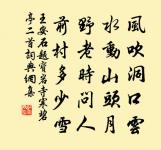 風吹洞口雲
水動山頭月
野老時問人
前村多少雪
王安石題寶岩寺寒碧
亭二首詞典網集